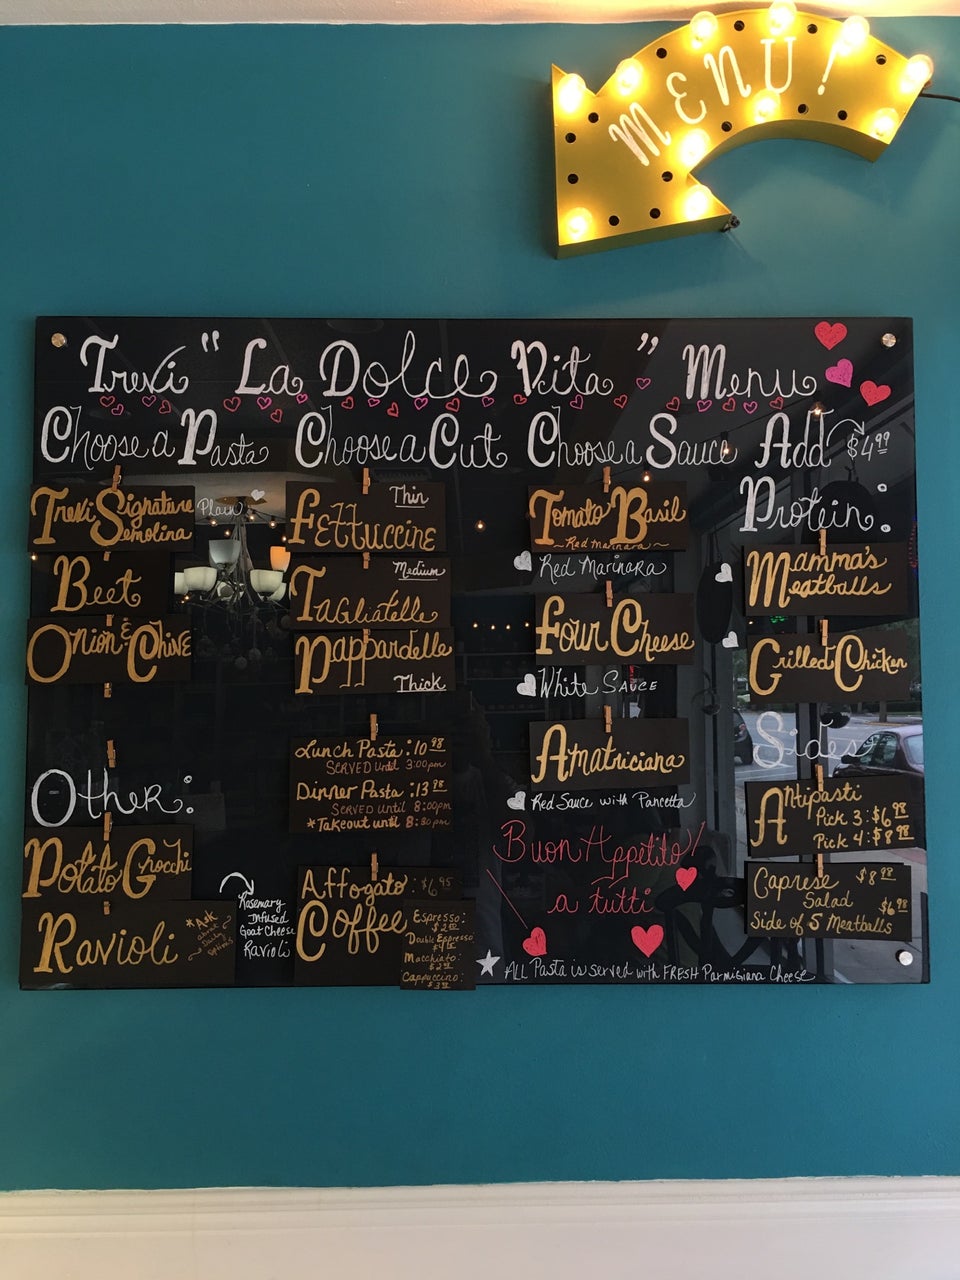 MENU!
Trevi "La Dolce Vita" Menu
Choose a Pasta
Trevi Signature
Semolina
Plain
Beet
Onion & Chive
Other:
Potato Gnocchi
Ravioli
*Ask
about
Daily
options
Rosemary
Infused
Goat Cheese
Ravioli
Choose a Cut
Thin
Fettuccine
Medium
Tagliatelle
Pappardelle
Thick
Lunch Pasta: 10 98
SERVED until 3:00pm
Dinner Pasta: 13 98
SERVED until 8:00pm
*Takeout until 8:30pm
Affogato: $6.95
Coffee
Espresso:
Double Espresso
Macchiato:
Cappuccino:
Choose a Sauce
Tomato Basil
~Red marinara~
Red Marinara
Four Cheese
White Sauce
Amatriciana
Red Sauce with Pancetta
Buon Appetito!
a tutti
ALL Pasta is served with FRESH Parmigiana Cheese
Add $4.99
Protein:
Mamma's
Meatballs
Grilled Chicken
Sides
Antipasti
Pick 3: $6 98
Pick 4: $8 98
Caprese $8 98
Salad
$6 98
Side of 5 Meatballs